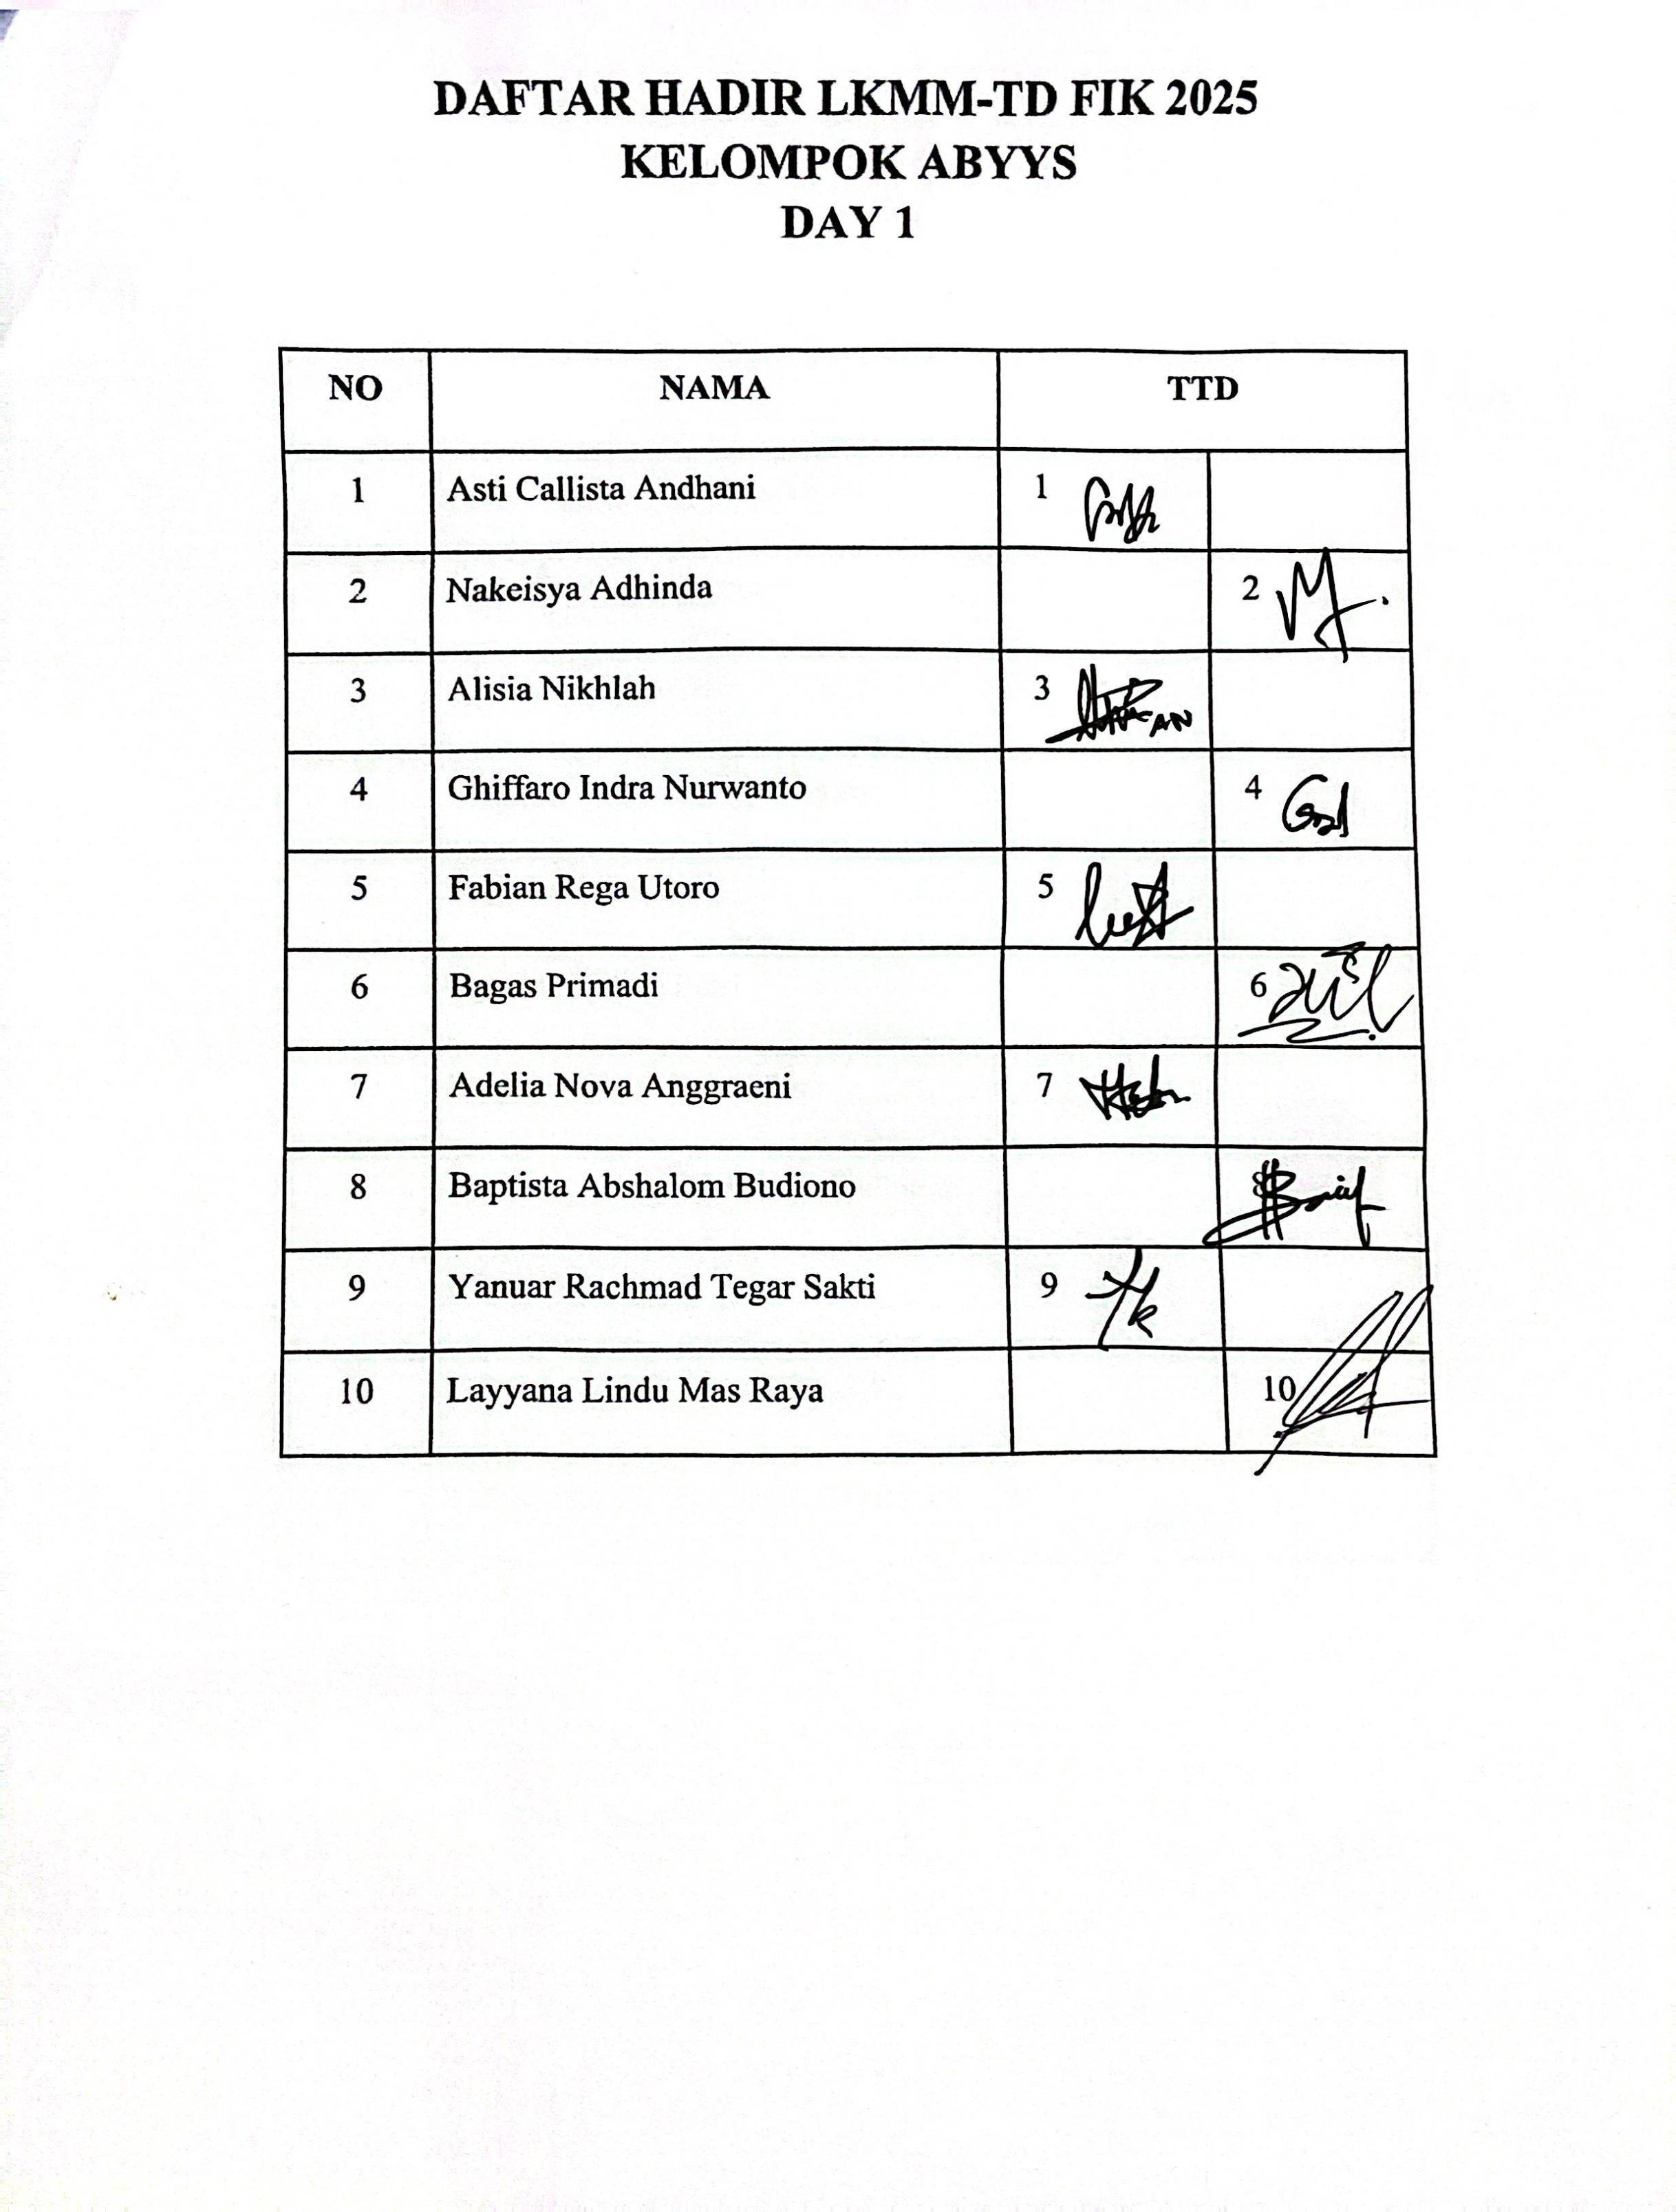 DAFTAR HADIR LKMM-TD FIK 2025
KELOMPOK ABYYS
DAY 1
NO NAMA TTD
1 Asti Callista Andhani 1
2 Nakeisya Adhinda 2
3 Alisia Nikhlah 3 AN
4 Ghiffaro Indra Nurwanto 4
5 Fabian Rega Utoro 5
6 Bagas Primadi 6
7 Adelia Nova Anggraeni 7
8 Baptista Abshalom Budiono 8
9 Yanuar Rachmad Tegar Sakti 9
10 Layyana Lindu Mas Raya 10